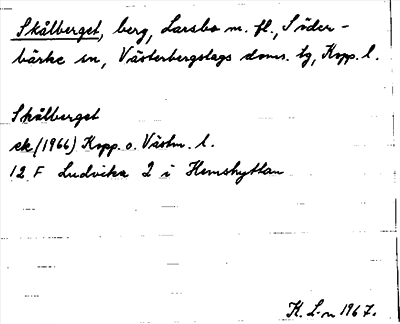 Skålberget, berg, Larsbo m. fl., Söder-
bärke sn, Västerbergslags doms. tg, Kopp. l.
Skålberget
ek (1966) Kopp. o. Västm. l.
12 F Ludvika 2 i Hemshyttan
K. L-n 1967.